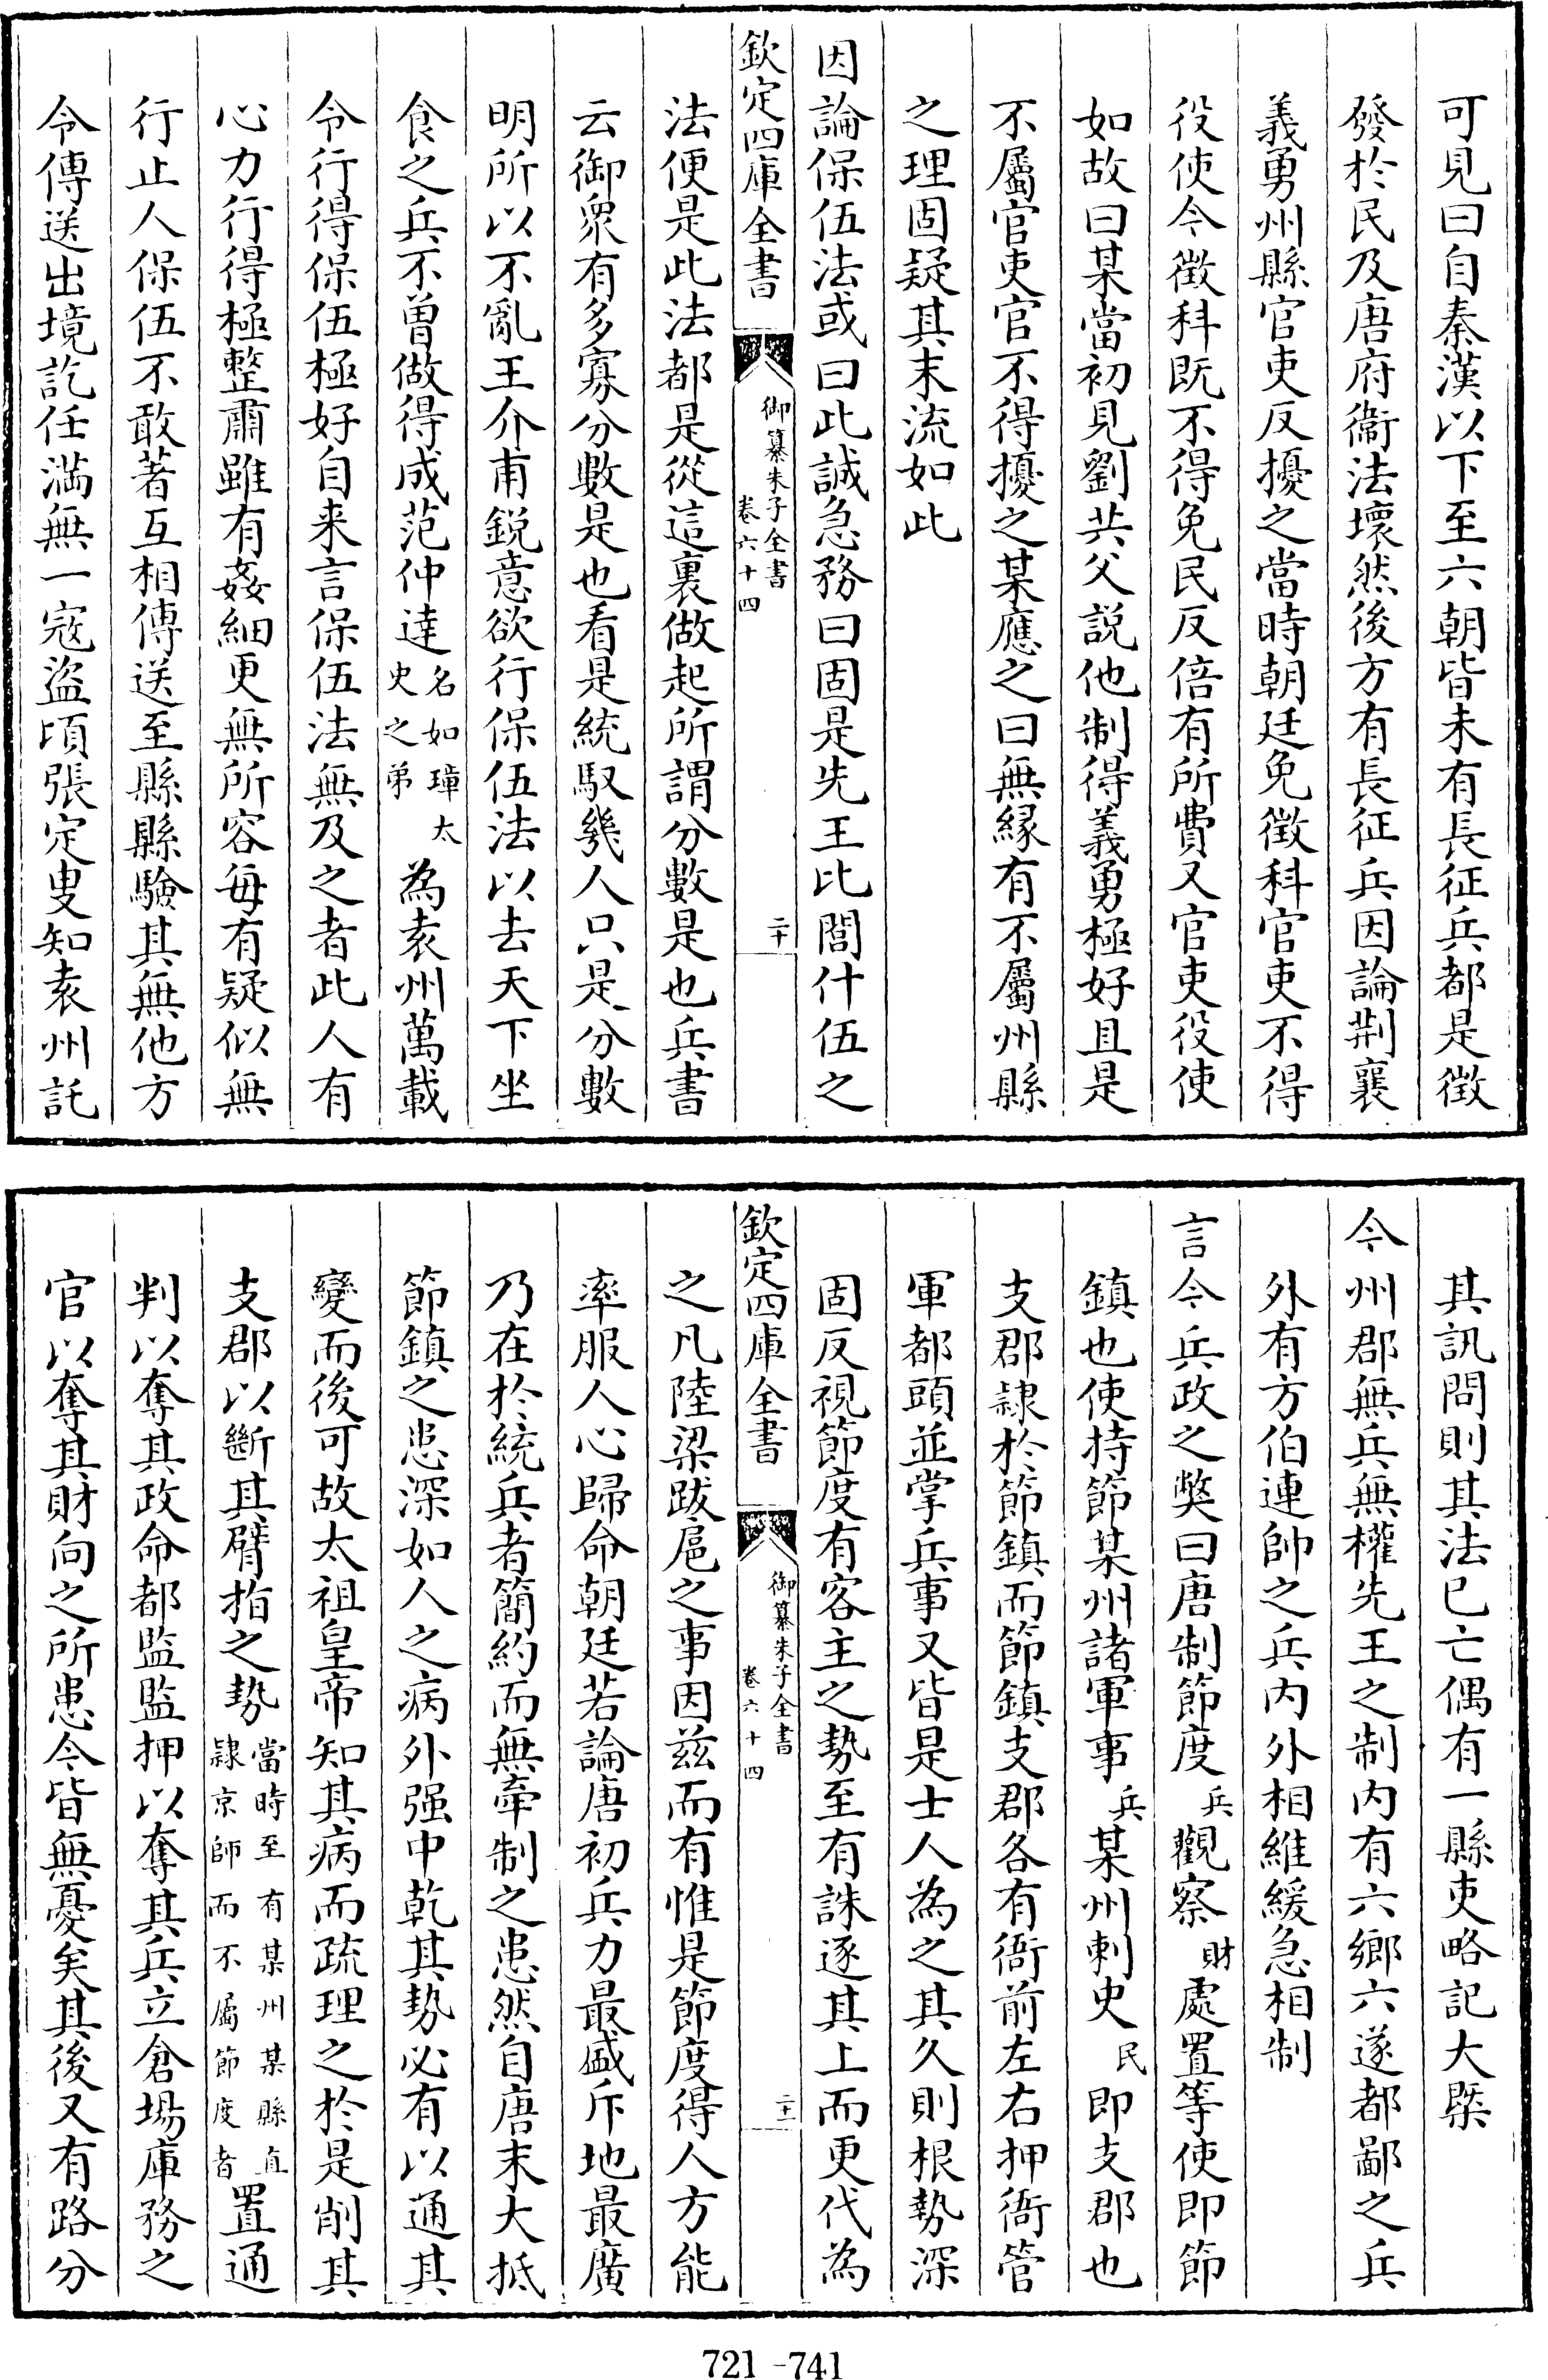 可見曰自秦漢以下至六朝皆未有長征兵都是徴
發於民及唐府衞法壞然後方有長征兵因論荆襄
義勇州縣官吏反擾之當時朝廷免徴科官吏不得
役使今徴科既不得免民反倍有所費又官吏役使
如故曰某當初見劉共父説他制得義勇極好且是
不屬官吏官不得擾之某應之曰無縁有不屬州縣
之理固疑其末流如此
因論保伍法或曰此誠急務曰固是先王比閭什伍之
欽定四庫全書
御纂朱子全書
卷六十四
二十
法便是此法都是從這裏做起所謂分數是也兵書
云御衆有多寡分數是也看是統馭幾人只是分數
明所以不亂王介甫鋭意欲行保伍法以去天下坐
食之兵不曾做得成范仲達名如璋太史之弟為袁州萬載
令行得保伍極好自来言保伍法無及之者此人有
心力行得極整肅雖有姦細更無所容每有疑似無
行止人保伍不敢著互相傳送至縣縣驗其無他方
令傳送出境訖任滿無一宼盜頃張定叟知袁州託
其訊問則其法已亡偶有一縣吏略記大槩
今州郡無兵無權先王之制内有六鄉六遂都鄙之兵
外有方伯連帥之兵内外相維緩急相制
言今兵政之獘曰唐制節度兵觀察財處置等使即節
鎮也使持節某州諸軍事兵某州刺史民即支郡也
支郡隷於節鎮而節鎮支郡各有衙前左右押衙管
軍都頭並掌兵事又皆是士人為之其久則根勢深
固反視節度有客主之勢至有誅逐其上而更代為
欽定四庫全書
御纂朱子全書
卷六十四
二十一
之凡陸梁跋扈之事因兹而有惟是節度得人方能
率服人心歸命朝廷若論唐初兵力最盛斥地最廣
乃在於統兵者簡約而無牽制之患然自唐末大抵
節鎮之患深如人之病外强中乾其勢必有以通其
變而後可故太祖皇帝知其病而疏理之於是削其
支郡以斷其臂指之勢當時至有某州某縣直隷京師而不屬節度者置通
判以奪其政命都監監押以奪其兵立倉場庫務之
官以奪其財向之所患今皆無憂矣其後又有路分
721-741